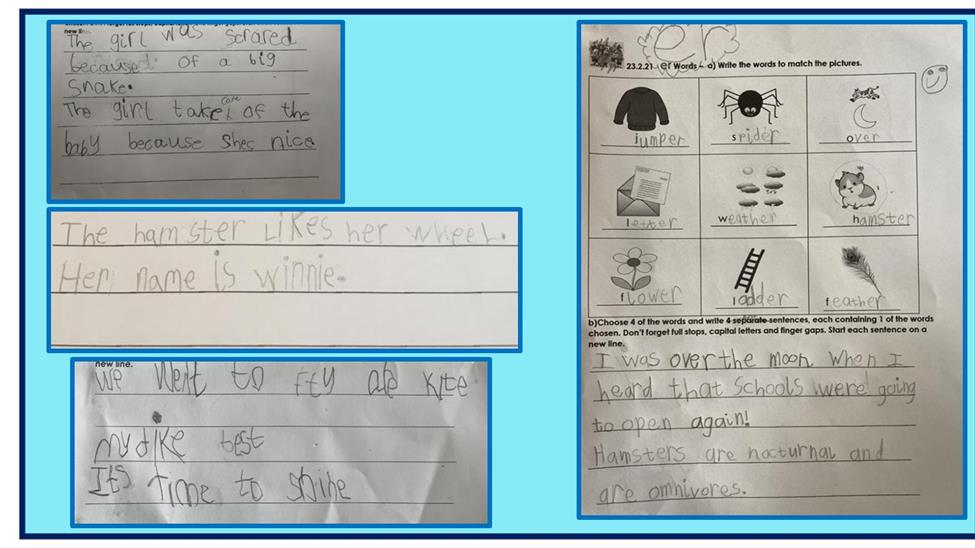 new line.
The girl was scrared
becaused of a big
snake.
care
The girl take of the
baby because shes nice
The hamster Likes her wheel.
Her name is winnie.
new line.
We went to
kite
my test
Its time to shine
er
23.2.21 er Words a) Write the words to match the pictures.
jumper spider over
letter weather hamster
flower ladder feather
b)Choose 4 of the words and write 4 separate sentences, each containing 1 of the words
chosen. Don't forget full stops, capital letters and finger gaps. Start each sentence on a
new line.
I was over the moon when I
heard that schools were going
to open again!
Hamsters are nocturnal and
are omnivores.